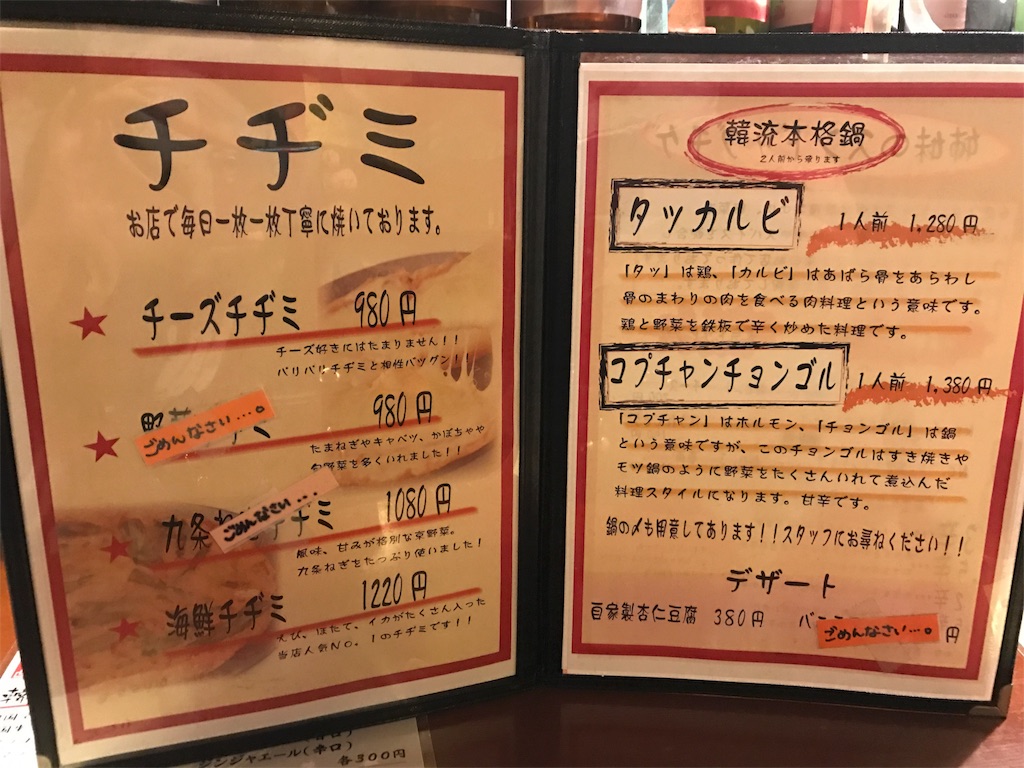 チヂミ
お店で毎日一枚一枚丁寧に焼いております。
★ チーズチヂミ 980円
チーズ好きにはたまりません!!
パリパリチヂミと相性バツグン!!
★ 野 ミ 980円
ごめんなさい…。
たまねぎやキャベツ、かぼちゃや
旬野菜を多くいれました!!
★ 九条ね チヂミ 1080円
ごめんなさい…
風味、甘みが格別な京野菜。
九条ねぎをたっぷり使いました!
★ 海鮮チヂミ 1220円
えび、ほたて、イカがたくさん入った
当店人気NO.1のチヂミです!!
韓流本格鍋
2人前から承ります
タッカルビ 1人前 1,280円
「タッ」は鶏、「カルビ」はあばら骨をあらわし
骨のまわりの肉を食べる肉料理という意味です。
鶏と野菜を鉄板で辛く炒めた料理です。
コプチャンチョンゴル 1人前 1,380円
「コプチャン」はホルモン、「チョンゴル」は鍋
という意味ですが、このチョンゴルはすき焼きや
モツ鍋のように野菜をたくさんいれて煮込んだ
料理スタイルになります。甘辛です。
鍋の〆も用意してあります!!スタッフにお尋ねください!!
デザート
自家製杏仁豆腐 380円 バ 円
ごめんなさい…。
ジンジャエール(辛口)
各300円